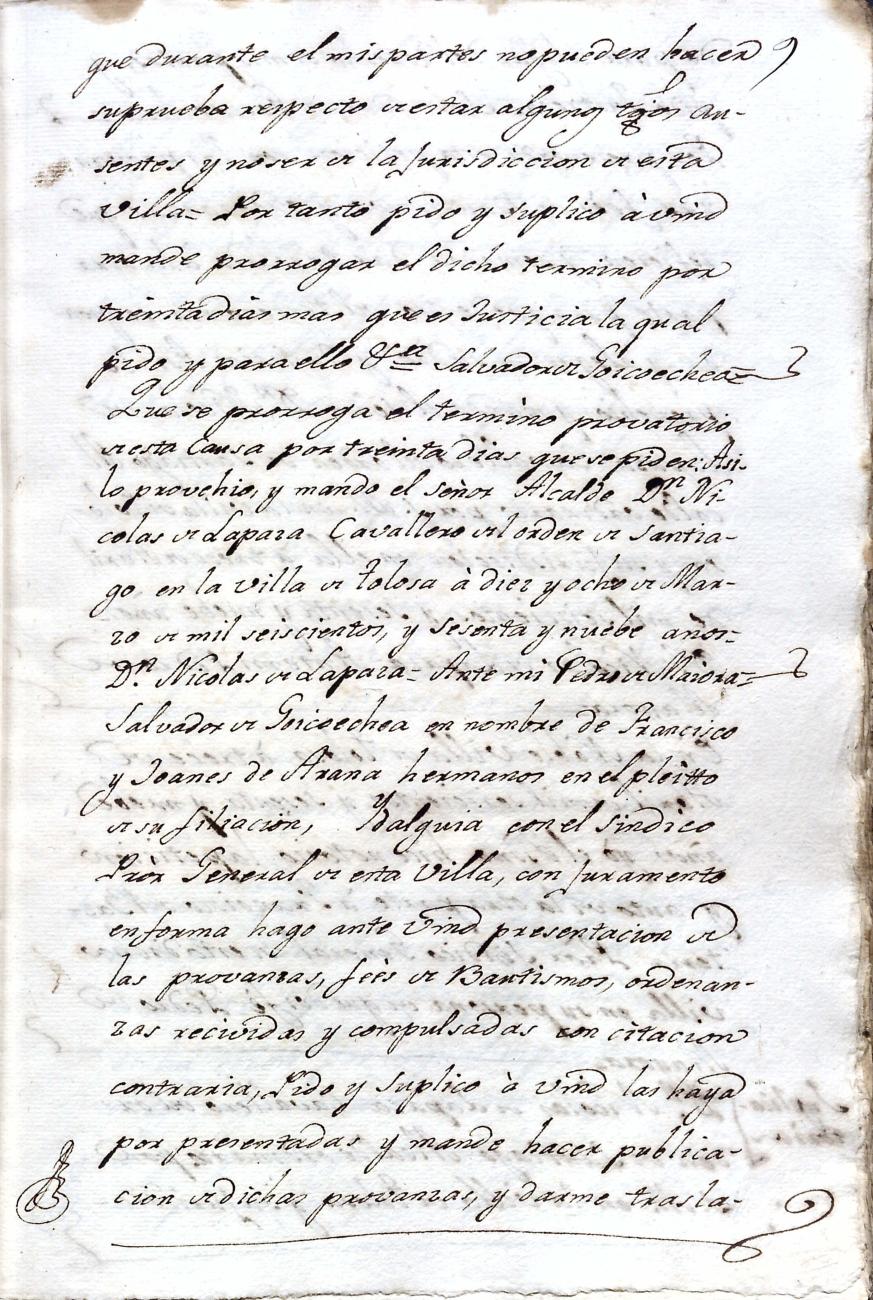 que durante el mis partes no pueden hacer
su prueba respecto de estar algunos tgos au-
sentes y no ser de la Jurisdiccion de esta
Villa= Por tanto pido y suplico à vmd
mande prorrogar el dicho termino por
treinta dias mas que es Justicia la qual
pido y para ello &ra Salvador de Goicoechea=
Que se prorroga el termino provatorio
de esta Causa por treinta dias que se piden: Asi
lo provehio, y mando el señor Alcalde Dn. Ni-
colas de Lapaza Cavallero del orden de Santia-
go en la villa de Tolosa à diez y ocho de Mar-
zo de mil seiscientos, y sesenta y nuebe años=
Dn. Nicolas de Lapaza= Ante mi Pedro de Maiora=
Salvador de Goicoechea en nombre de Francisco
y Joanes de Arana hermanos en el pleitto
de su filiacion, y Idalguia con el Sindico
Pròr General de esta Villa, con Juramento
en forma hago ante Vmd presentacion de
las provanzas, feès de Bautismos, ordenan-
zas recividas y compulsadas con citacion
contraria, Pido y Suplico à Vmd las haya
por presentadas y mande hacer publica-
cion de dichas provanzas, y darme trasla-